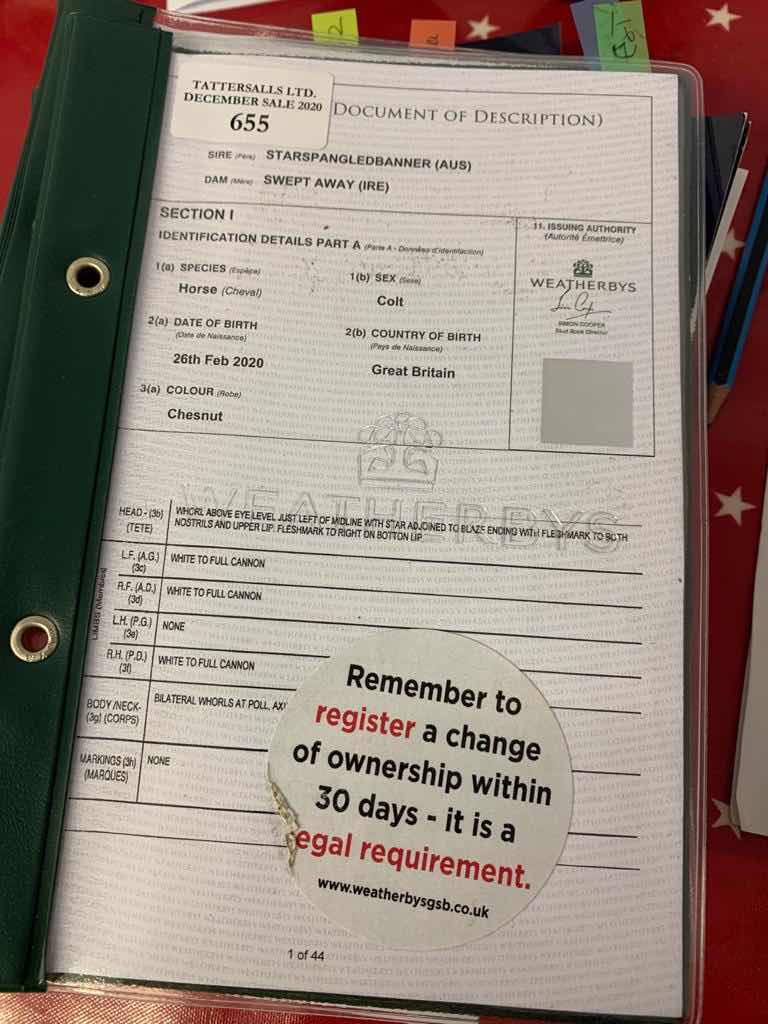 TATTERSALLS LTD.
DECEMBER SALE 2020
655
DOCUMENT OF DESCRIPTION)
SIRE (Père) STARSPANGLEDBANNER (AUS)
DAM (Mère) SWEPT AWAY (IRE)
SECTION I
IDENTIFICATION DETAILS PART A (Partie A - Données d'identification)
1(a) SPECIES (Espèce)
Horse (Cheval)
1(b) SEX (Sexe)
Colt
2(a) DATE OF BIRTH
(Date de Naissance)
26th Feb 2020
2(b) COUNTRY OF BIRTH
(Pays de Naissance)
Great Britain
3(a) COLOUR (Robe)
Chesnut
11. ISSUING AUTHORITY
(Autorité Émettrice)
WEATHERBYS
SIMON COOPER
Stud Book Director
WEATHERBYS
HEAD - (3b)
(TETE)
WHORL ABOVE EYE LEVEL JUST LEFT OF MIDLINE WITH STAR ADJOINED TO BLAZE ENDING WITH FLESHMARK TO BOTH
NOSTRILS AND UPPER LIP. FLESHMARK TO RIGHT ON BOTTON LIP
LIMBS (Membres)
L.F. (A.G.)
(3c)
WHITE TO FULL CANNON
R.F. (A.D.)
(3d)
WHITE TO FULL CANNON
L.H. (P.G.)
(3e)
NONE
R.H. (P.D.)
(3f)
WHITE TO FULL CANNON
BODY /NECK-
(3g) (CORPS)
BILATERAL WHORLS AT POLL,
MARKINGS (3h)
(MARQUES)
NONE
Remember to
register a change
of ownership within
30 days - it is a
egal requirement.
www.weatherbysgsb.co.uk
1 of 44